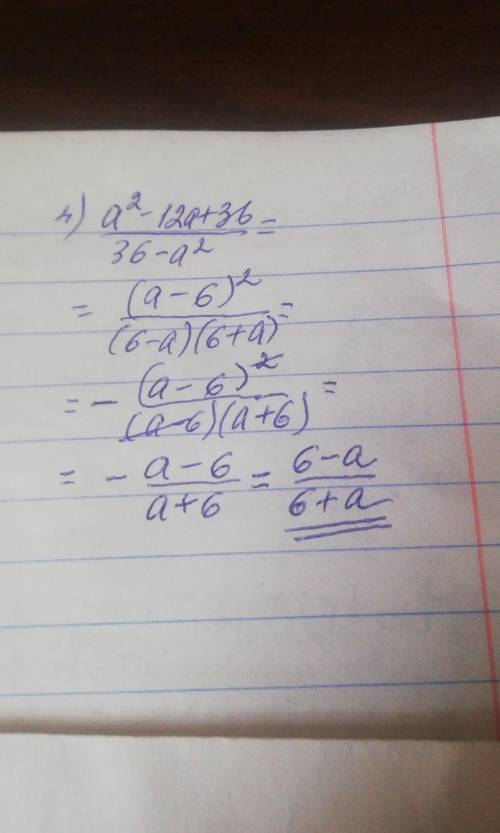 4) a²-12a+36 / 36-a² =
= (a-6)² / (6-a)(6+a) =
= - (a-6)² / (a-6)(a+6) =
= - a-6 / a+6 = 6-a / 6+a